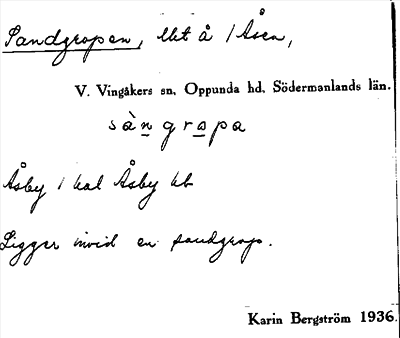 Sandgropen, llet å /Åsen,
V. Vingåkers sn. Oppunda hd. Södermanlands län.
sàngrapa
Åsby / kal Åsby kb
Ligger invid en sandgrop.
Karin Bergström 1936.